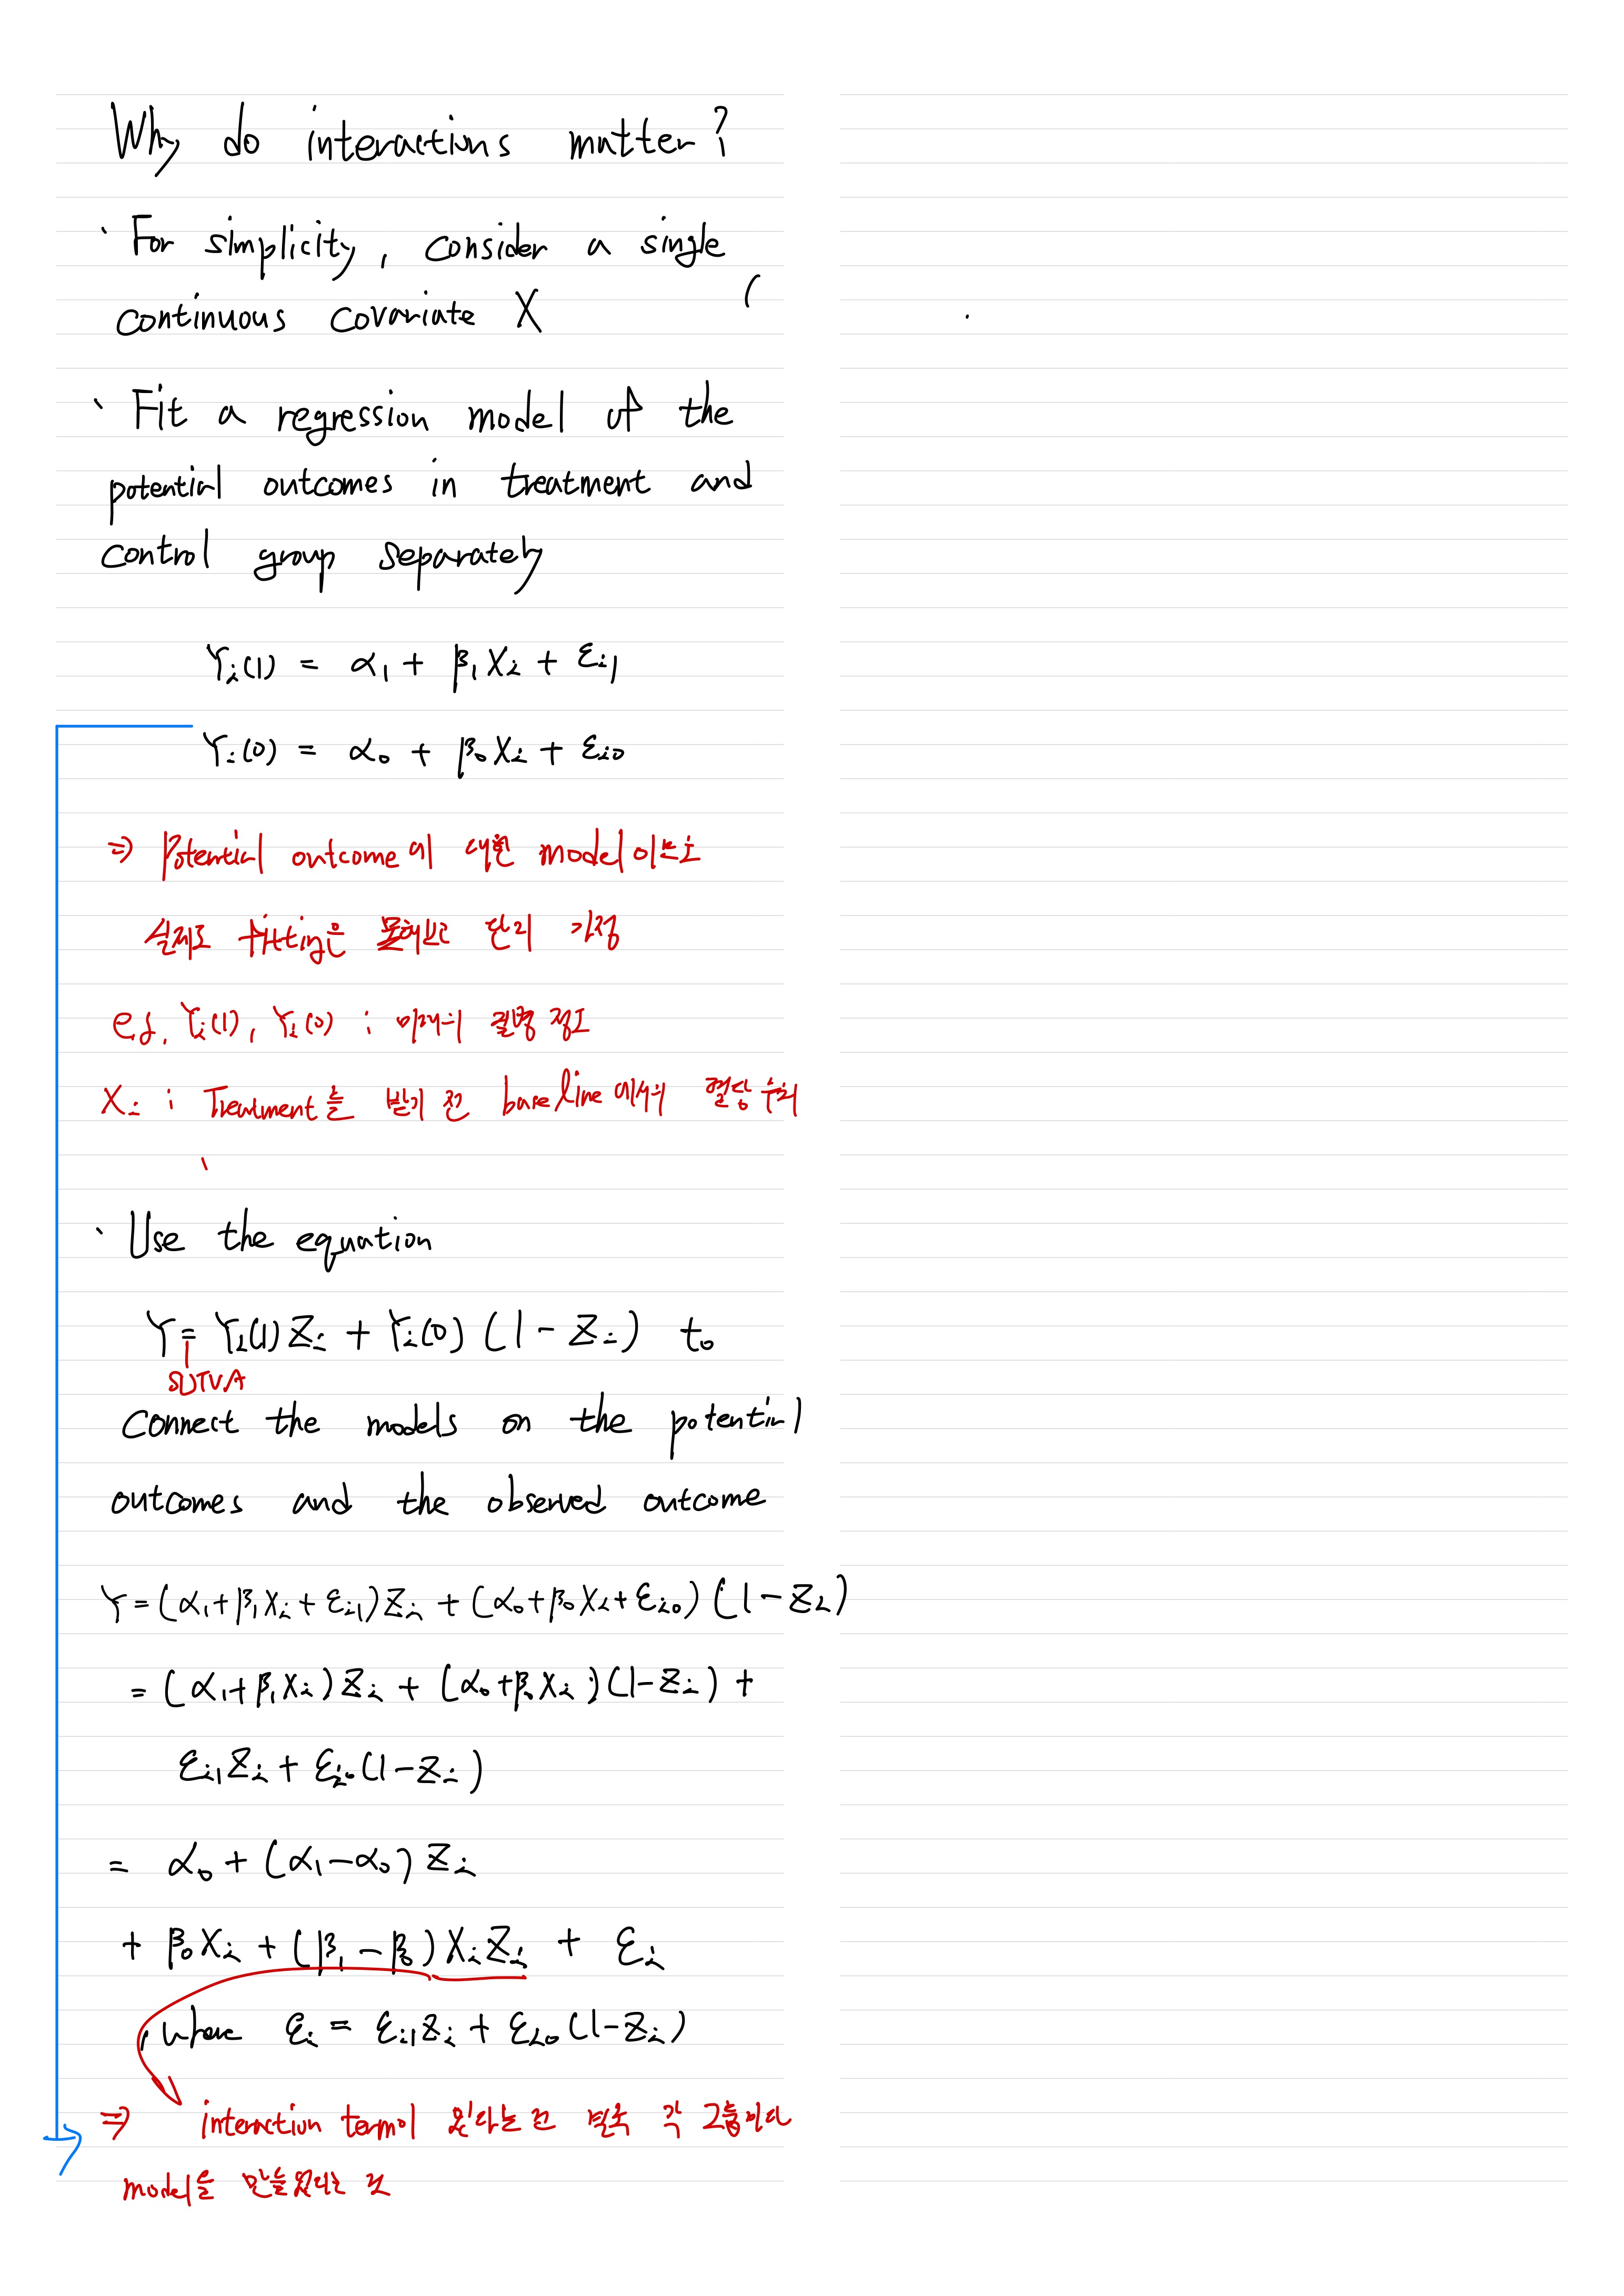 Why do interactions matter?
· For simplicity, consider a single
continuous covariate X
· Fit a regression model of the
potential outcomes in treatment and
control group separately
Yᵢ(1) = α₁ + β₁Xᵢ + εᵢ₁
Yᵢ(0) = α₀ + β₀Xᵢ + εᵢ₀
⇒ Potential outcome에 대한 model이므로
실제로 fitting은 못해보고 단지 가정
e.g. Yᵢ(1), Yᵢ(0) : 미래의 질병 정도
Xᵢ : Treatment를 받기 전 baseline에서의 혈당 수치
· Use the equation
Y = Yᵢ(1)Zᵢ + Yᵢ(0)(1-Zᵢ) to
SUTVA
Connect the models on the potential
outcomes and the observed outcome
Y = (α₁+β₁Xᵢ+εᵢ₁)Zᵢ + (α₀+β₀Xᵢ+εᵢ₀)(1-Zᵢ)
= (α₁+β₁Xᵢ)Zᵢ + (α₀+β₀Xᵢ)(1-Zᵢ) +
εᵢ₁Zᵢ + εᵢ₀(1-Zᵢ)
= α₀ + (α₁-α₀)Zᵢ
+ β₀Xᵢ + (β₁-β₀)XᵢZᵢ + εᵢ
, where εᵢ = εᵢ₁Zᵢ + εᵢ₀(1-Zᵢ)
⇒ interaction term이 있다는건 결국 각 그룹마다
model을 만들었다는 것